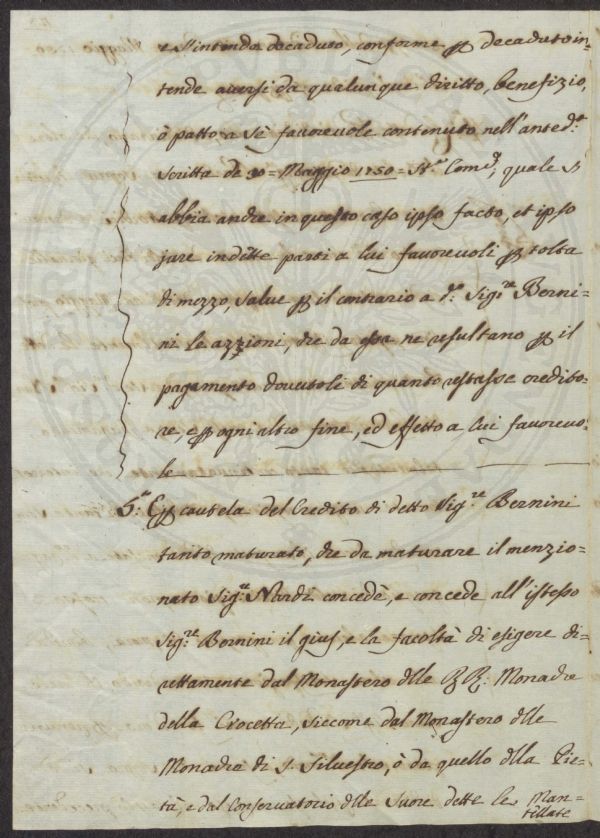 e s'intenda decaduto, conforme p decaduto in=
tende aversi da qualunque diritto, benefizio,
ò patto a sè favorevole contenuto nell'anted.ª
Scritta de 30 = Maggio 1750 = St.º Com.e, quale s'
abbia anche in questo caso ipso facto, et ipso
jure in dette parti a lui favorevoli p tolta
di mezzo, salve p il contrario a d.º Sig.re Berni=
ni le azzioni, che da essa ne resultano p il
pagamento dovutoli di quanto restasse credito=
re, e p ogni altro fine, ed effetto a lui favorevo=
le
5.ª E p cautela del Credito di detto Sig.re Bernini
tanto maturato, che da maturare il menzio=
nato Sig.re Nardi concedè, e concede all'istesso
Sig.re Bernini il gius, e la facoltà di esigere di=
rettamente dal Monastero dlle RR: Monache
della Crocetta, siccome dal Monastero dlle
Monache di S. Silvestro, ò da quello dlla Pie=
tà, e dal Conservatorio dlle Suore dette le Man=
tellate